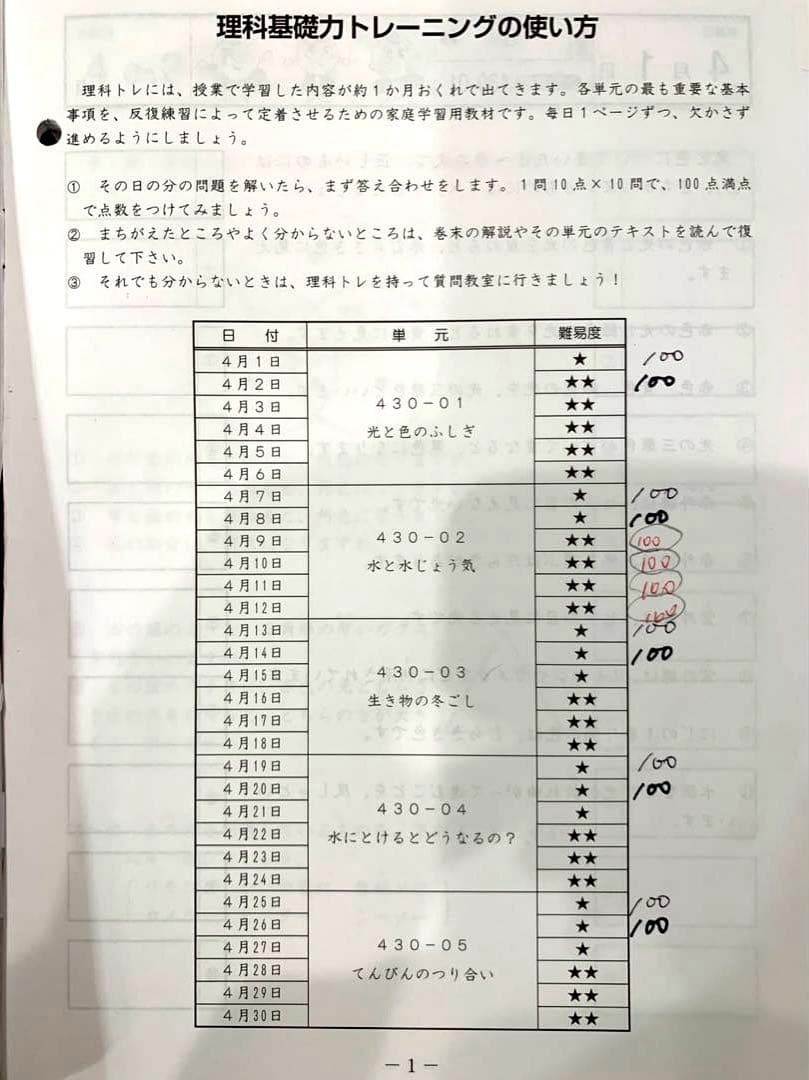 理科基礎力トレーニングの使い方
理科トレには、授業で学習した内容が約１か月おくれで出てきます。各単元の最も重要な基本
事項を、反復練習によって定着させるための家庭学習用教材です。毎日１ページずつ、欠かさず
進めるようにしましょう。
① その日の分の問題を解いたら、まず答え合わせをします。１問10点×10問で、100点満点
で点数をつけてみましょう。
② まちがえたところやよく分からないところは、巻末の解説やその単元のテキストを読んで復
習して下さい。
③ それでも分からないときは、理科トレを持って質問教室に行きましょう！
日 付 単 元 難易度
４月１日 ★ 100
４月２日 ★★ 100
４月３日 ４３０－０１ ★★
４月４日 光と色のふしぎ ★★
４月５日 ★★
４月６日 ★★
４月７日 ★ 100
４月８日 ★ 100
４月９日 ４３０－０２ ★★ 100
４月10日 水と水じょう気 ★★ 100
４月11日 ★★ 100
４月12日 ★★ 100
４月13日 ★ 100
４月14日 ★ 100
４月15日 ４３０－０３ ★
４月16日 生き物の冬ごし ★★
４月17日 ★★
４月18日 ★★
４月19日 ★ 100
４月20日 ★ 100
４月21日 ４３０－０４ ★
４月22日 水にとけるとどうなるの？ ★★
４月23日 ★★
４月24日 ★★
４月25日 ★ 100
４月26日 ★ 100
４月27日 ４３０－０５ ★
４月28日 てんびんのつり合い ★★
４月29日 ★★
４月30日 ★★
－１－